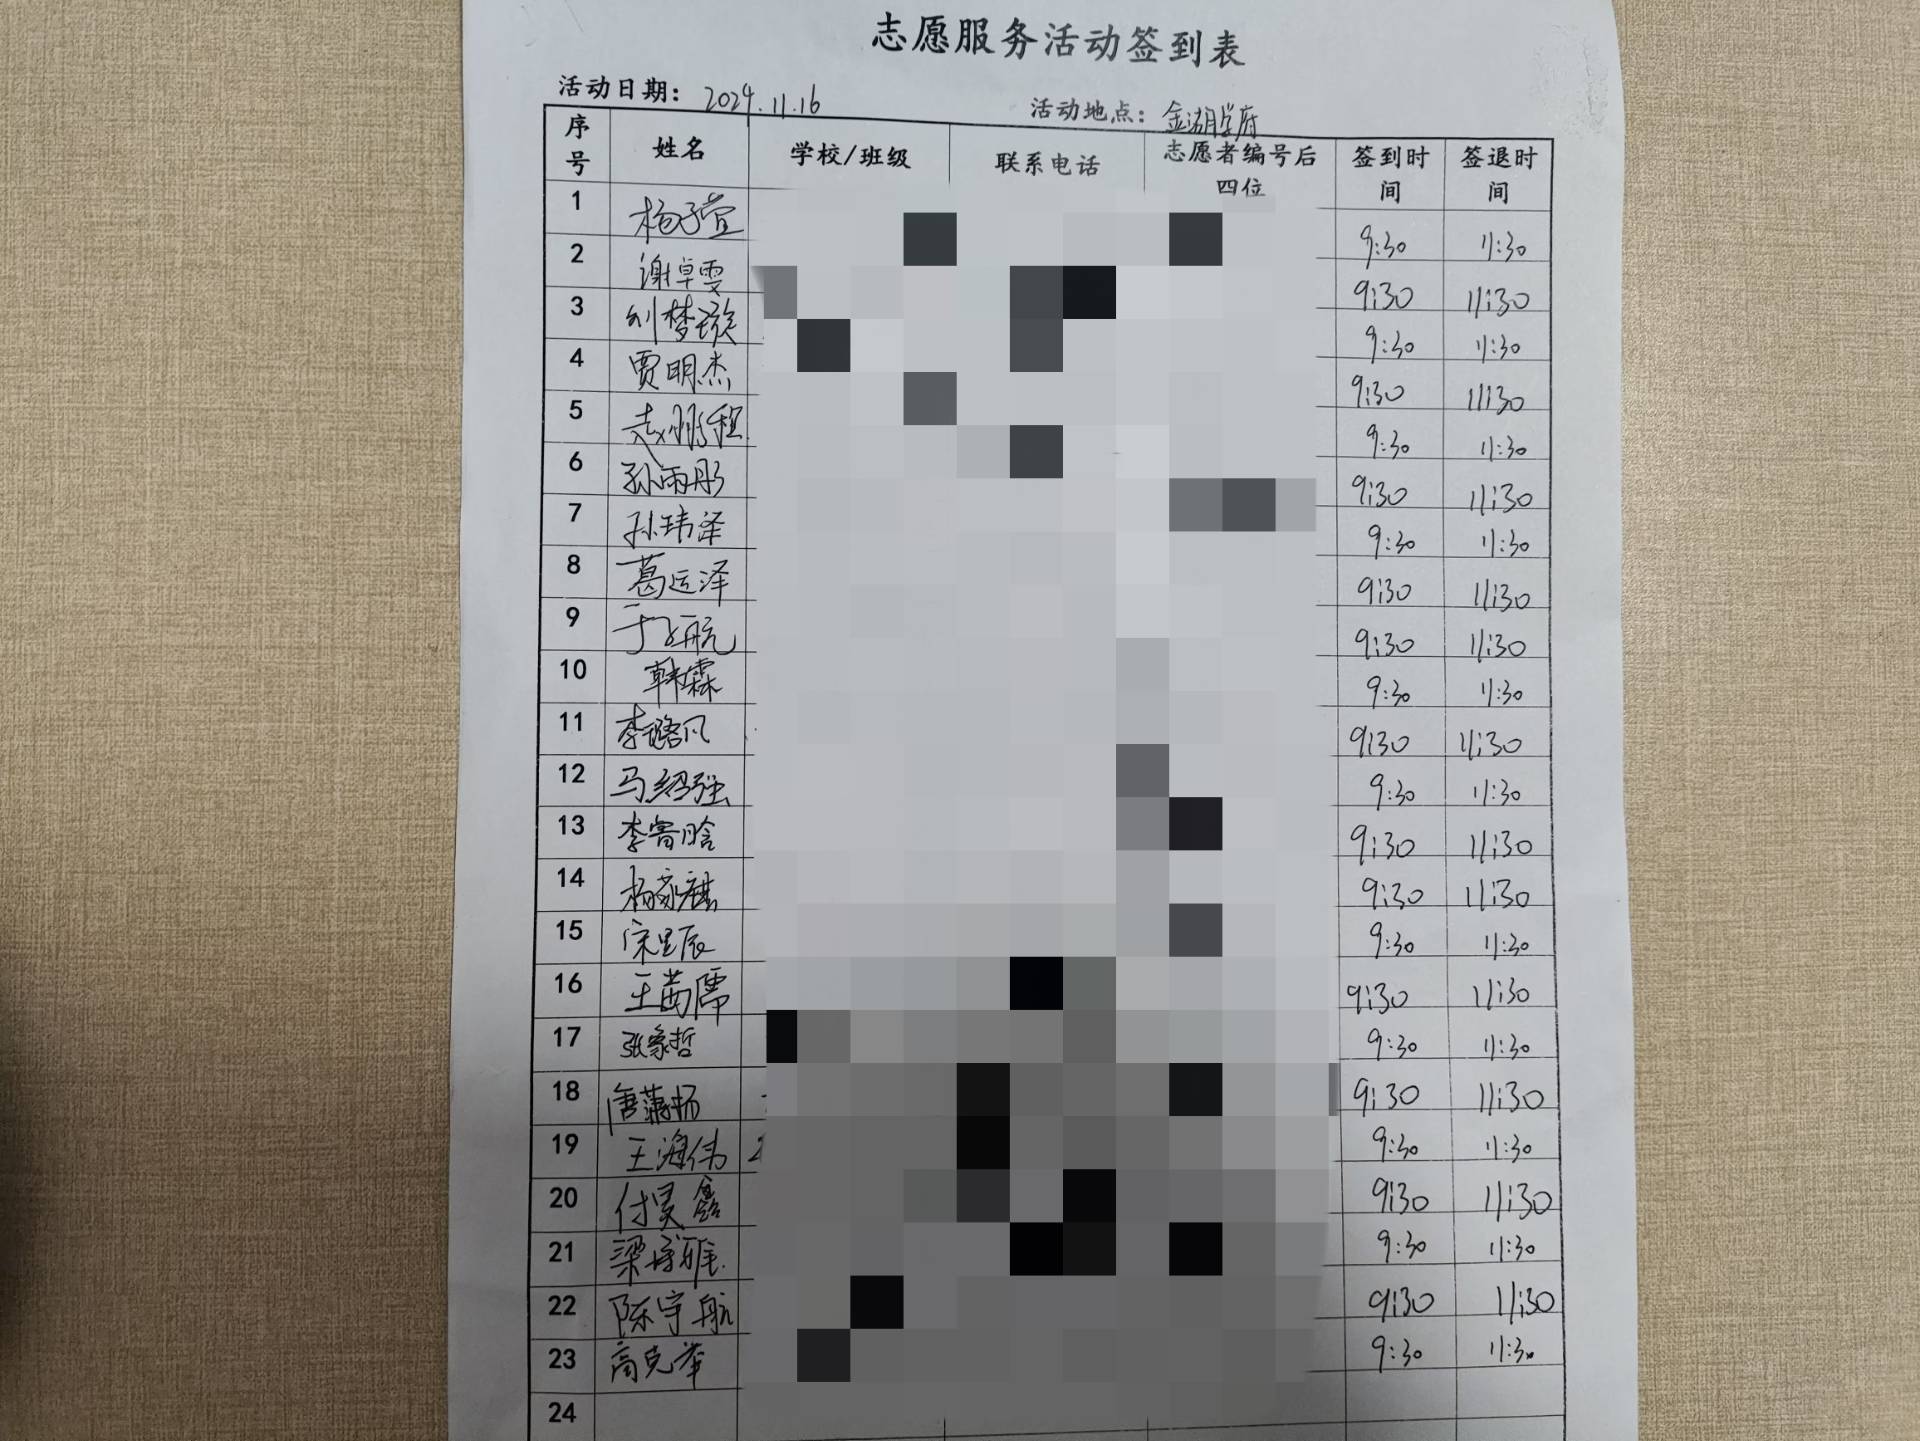 志愿服务活动签到表
活动日期：2024.11.16 活动地点：金湖学府
序号 姓名 学校/班级 联系电话 志愿者编号后四位 签到时间 签退时间
1 杨子萱 9:30 11:30
2 谢卓雯 9:30 11:30
3 刘梦璇 9:30 11:30
4 贾明杰 9:30 11:30
5 赵鹏程 9:30 11:30
6 孙雨彤 9:30 11:30
7 孙玮泽 9:30 11:30
8 葛运泽 9:30 11:30
9 于飞航 9:30 11:30
10 韩霖 9:30 11:30
11 李璐凡 9:30 11:30
12 马绍强 9:30 11:30
13 李 晗 9:30 11:30
14 杨家祺 9:30 11:30
15 宋星辰 9:30 11:30
16 王 儒 9:30 11:30
17 张家哲 9:30 11:30
18 唐 扬 9:30 11:30
19 王海伟 9:30 11:30
20 付昊鑫 9:30 11:30
21 梁 雅 9:30 11:30
22 陈宇航 9:30 11:30
23 高克举 9:30 11:30
24